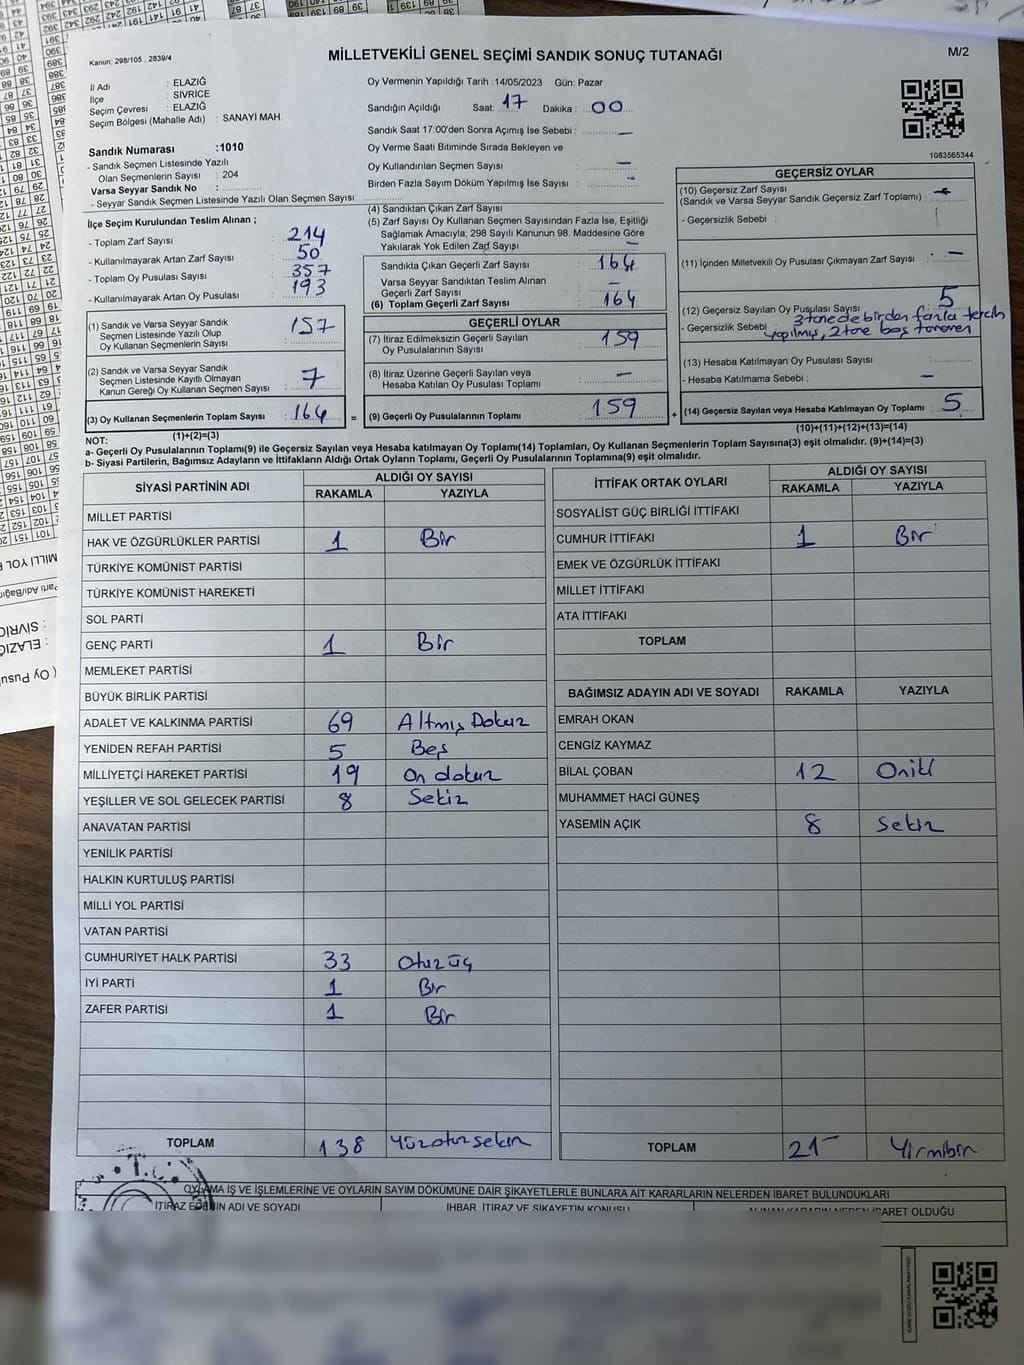 MİLLETVEKİLİ GENEL SEÇİMİ SANDIK SONUÇ TUTANAĞI
M/2
Kanun: 298/105 , 2839/4
İl Adı : ELAZIĞ
İlçe : SİVRİCE
Seçim Çevresi : ELAZIĞ
Seçim Bölgesi (Mahalle Adı) : SANAYİ MAH
Sandık Numarası :1010
- Sandık Seçmen Listesinde Yazılı
Olan Seçmenlerin Sayısı : 204
Varsa Seyyar Sandık No :
- Seyyar Sandık Seçmen Listesinde Yazılı Olan Seçmen Sayısı:
Oy Vermenin Yapıldığı Tarih :14/05/2023 Gün: Pazar
Sandığın Açıldığı Saat: 17 Dakika : 00
Sandık Saat 17:00'den Sonra Açımış İse Sebebi : —
Oy Verme Saati Bitiminde Sırada Bekleyen ve
Oy Kullandırılan Seçmen Sayısı —
Birden Fazla Sayım Döküm Yapılmış İse Sayısı : -
1083565344
İlçe Seçim Kurulundan Teslim Alınan ;
- Toplam Zarf Sayısı : 214
- Kullanılmayarak Artan Zarf Sayısı : 50
- Toplam Oy Pusulası Sayısı : 357
- Kullanılmayarak Artan Oy Pusulası : 193
(1) Sandık ve Varsa Seyyar Sandık
Seçmen Listesinde Yazılı Olup
Oy Kullanan Seçmenlerin Sayısı : 157
(2) Sandık ve Varsa Seyyar Sandık
Seçmen Listesinde Kayıtlı Olmayan
Kanun Gereği Oy Kullanan Seçmen Sayısı : 7
(3) Oy Kullanan Seçmenlerin Toplam Sayısı : 164 =
(1)+(2)=(3)
(4) Sandıktan Çıkan Zarf Sayısı :
(5) Zarf Sayısı Oy Kullanan Seçmen Sayısından Fazla İse, Eşitliği
Sağlamak Amacıyla; 298 Sayılı Kanunun 98. Maddesine Göre
Yakılarak Yok Edilen Zarf Sayısı : —
Sandıkta Çıkan Geçerli Zarf Sayısı : 164
Varsa Seyyar Sandıktan Teslim Alınan
Geçerli Zarf Sayısı : —
(6) Toplam Geçerli Zarf Sayısı : 164
GEÇERLİ OYLAR
(7) İtiraz Edilmeksizin Geçerli Sayılan
Oy Pusulalarının Sayısı : 159
(8) İtiraz Üzerine Geçerli Sayılan veya
Hesaba Katılan Oy Pusulası Toplamı : —
(9) Geçerli Oy Pusulalarının Toplamı : 159 +
GEÇERSİZ OYLAR
(10) Geçersiz Zarf Sayısı
(Sandık ve Varsa Seyyar Sandık Geçersiz Zarf Toplamı) :
- Geçersizlik Sebebi :
(11) İçinden Milletvekili Oy Pusulası Çıkmayan Zarf Sayısı : —
(12) Geçersiz Sayılan Oy Pusulası Sayısı : 5
- Geçersizlik Sebebi : 3 tanede birden fazla tercih
yapılmış, 2 tane boş
(13) Hesaba Katılmayan Oy Pusulası Sayısı :
- Hesaba Katılmama Sebebi : —
(14) Geçersiz Sayılan veya Hesaba Katılmayan Oy Toplamı : 5
(10)+(11)+(12)+(13)=(14)
NOT:
a- Geçerli Oy Pusulalarının Toplamı(9) ile Geçersiz Sayılan veya Hesaba katılmayan Oy Toplamı(14) Toplamları, Oy Kullanan Seçmenlerin Toplam Sayısına(3) eşit olmalıdır. (9)+(14)=(3)
b- Siyasi Partilerin, Bağımsız Adayların ve İttifakların Aldığı Ortak Oyların Toplamı, Geçerli Oy Pusulalarının Toplamına(9) eşit olmalıdır.
SİYASİ PARTİNİN ADI ALDIĞI OY SAYISI
RAKAMLA YAZIYLA
MİLLET PARTİSİ
HAK VE ÖZGÜRLÜKLER PARTİSİ 1 Bir
TÜRKİYE KOMÜNİST PARTİSİ
TÜRKİYE KOMÜNİST HAREKETİ
SOL PARTİ
GENÇ PARTİ 1 Bir
MEMLEKET PARTİSİ
BÜYÜK BİRLİK PARTİSİ
ADALET VE KALKINMA PARTİSİ 69 Altmış Dokuz
YENİDEN REFAH PARTİSİ 5 Beş
MİLLİYETÇİ HAREKET PARTİSİ 19 On dokuz
YEŞİLLER VE SOL GELECEK PARTİSİ 8 Sekiz
ANAVATAN PARTİSİ
YENİLİK PARTİSİ
HALKIN KURTULUŞ PARTİSİ
MİLLİ YOL PARTİSİ
VATAN PARTİSİ
CUMHURİYET HALK PARTİSİ 33 Otuz üç
İYİ PARTİ 1 Bir
ZAFER PARTİSİ 1 Bir
TOPLAM 138 Yüzotuzsekiz
İTTİFAK ORTAK OYLARI ALDIĞI OY SAYISI
RAKAMLA YAZIYLA
SOSYALİST GÜÇ BİRLİĞİ İTTİFAKI
CUMHUR İTTİFAKI 1 Bir
EMEK VE ÖZGÜRLÜK İTTİFAKI
MİLLET İTTİFAKI
ATA İTTİFAKI
TOPLAM
BAĞIMSIZ ADAYIN ADI VE SOYADI RAKAMLA YAZIYLA
EMRAH OKAN
CENGİZ KAYMAZ
BİLAL ÇOBAN 12 Oniki
MUHAMMET HACİ GÜNEŞ
YASEMİN AÇIK 8 Sekiz
TOPLAM 21 Yirmibir
OYLAMA İŞ VE İŞLEMLERİNE VE OYLARIN SAYIM DÖKÜMÜNE DAİR ŞİKAYETLERLE BUNLARA AİT KARARLARIN NELERDEN İBARET BULUNDUKLARI
İTİRAZ EDENİN ADI VE SOYADI İHBAR, İTİRAZ VE ŞİKAYETİN KONUSU ALINAN KARARIN NEDEN İBARET OLDUĞU
T.C.